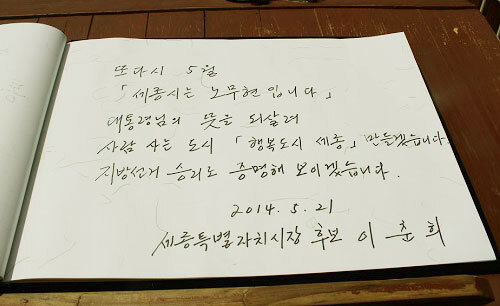 또다시 5월
「세종시는 노무현입니다」
대통령님의 뜻을 되살려
사람 사는 도시 「행복도시 세종」 만들겠습니다.
지방선거 승리로 증명해 보이겠습니다.
2014. 5. 21
세종특별자치시장 후보 이 춘 희